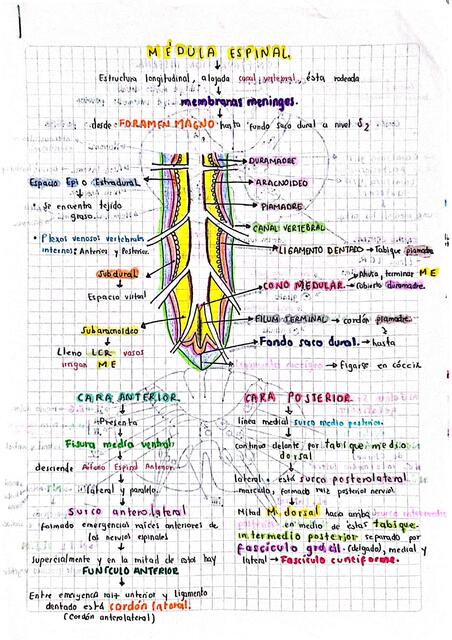 MÉDULA ESPINAL
Estructura longitudinal, alojada canal vertebral, ésta rodeada
membranas meninges.
desde FORAMEN MAGNO hasta fondo saco dural a nivel S2
DURAMADRE
Espacio Epi o Extradural
ARACNOIDEO
Se encuentra tejido
graso.
PIAMADRE
CANAL VERTEBRAL
Plexos venosos vertebrales
internos: Anterior y Posterior.
LIGAMENTO DENTADO → Tabique piamadre
Subdural
Espacio virtual
CONO MEDULAR. → terminar ME
→ cubierto duramadre.
Subaracnoideo
FILUM TERMINAL → cordón piamadre.
Lleno LCR vasos
irrigan ME
Fondo saco dural. → hasta
→ fijarse en cóccix
CARA ANTERIOR
Presenta
Fisura media ventral
desciende Espinal Anterior.
lateral y paralelo.
surco anterolateral
formado emergencias raíces anteriores de
los nervios espinales
supercialmente y en la mitad de estos hay
FUNÍCULO ANTERIOR
Entre emergencia raíz anterior y ligamento
dentado está cordón lateral.
(cordón anterolateral)
CARA POSTERIOR
línea medial surco medio posterior.
continuo delante por tabique medio
dorsal
lateral a está surco posterolateral
formado raíz posterior nervio
Mitad M. dorsal hacia arriba surco intermedio
en medio de éstas tabique
intermedio posterior separado por
fascículo grácil (delgado), medial y
lateral → Fascículo cuneiforme.